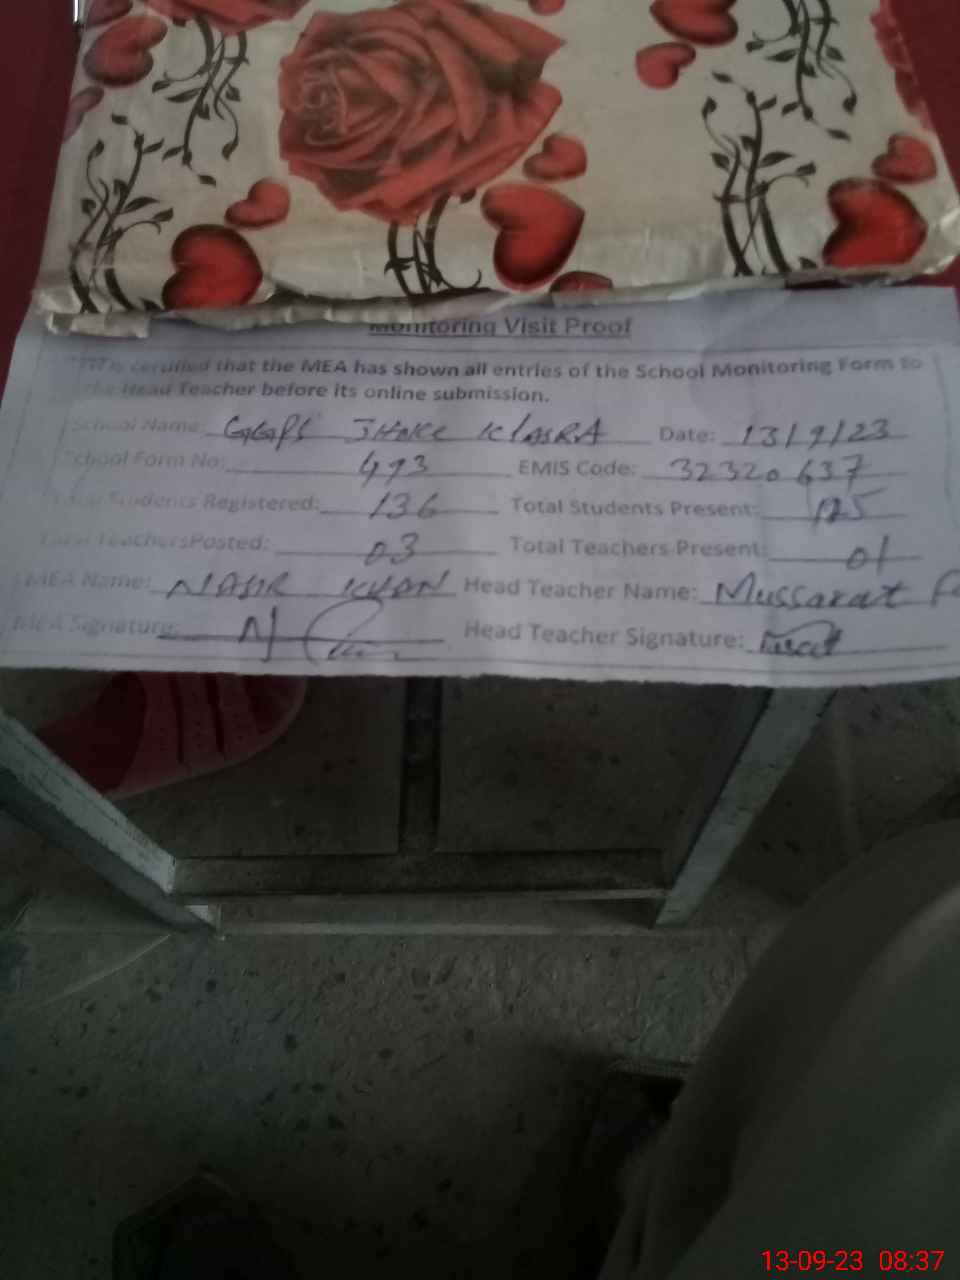 Monitoring Visit Proof
It is certified that the MEA has shown all entries of the School Monitoring Form to
the Head Teacher before its online submission.
School Name: GGPS JHOKE KlASRA Date: 13/9/23
School Form No: 493 EMIS Code: 32320637
Total Students Registered: 136 Total Students Present: 125
Total TeachersPosted: 03 Total Teachers Present: 01
MEA Name: NASIR KHAN Head Teacher Name: Mussarat
MEA Signature: Head Teacher Signature:
13-09-23 08:37